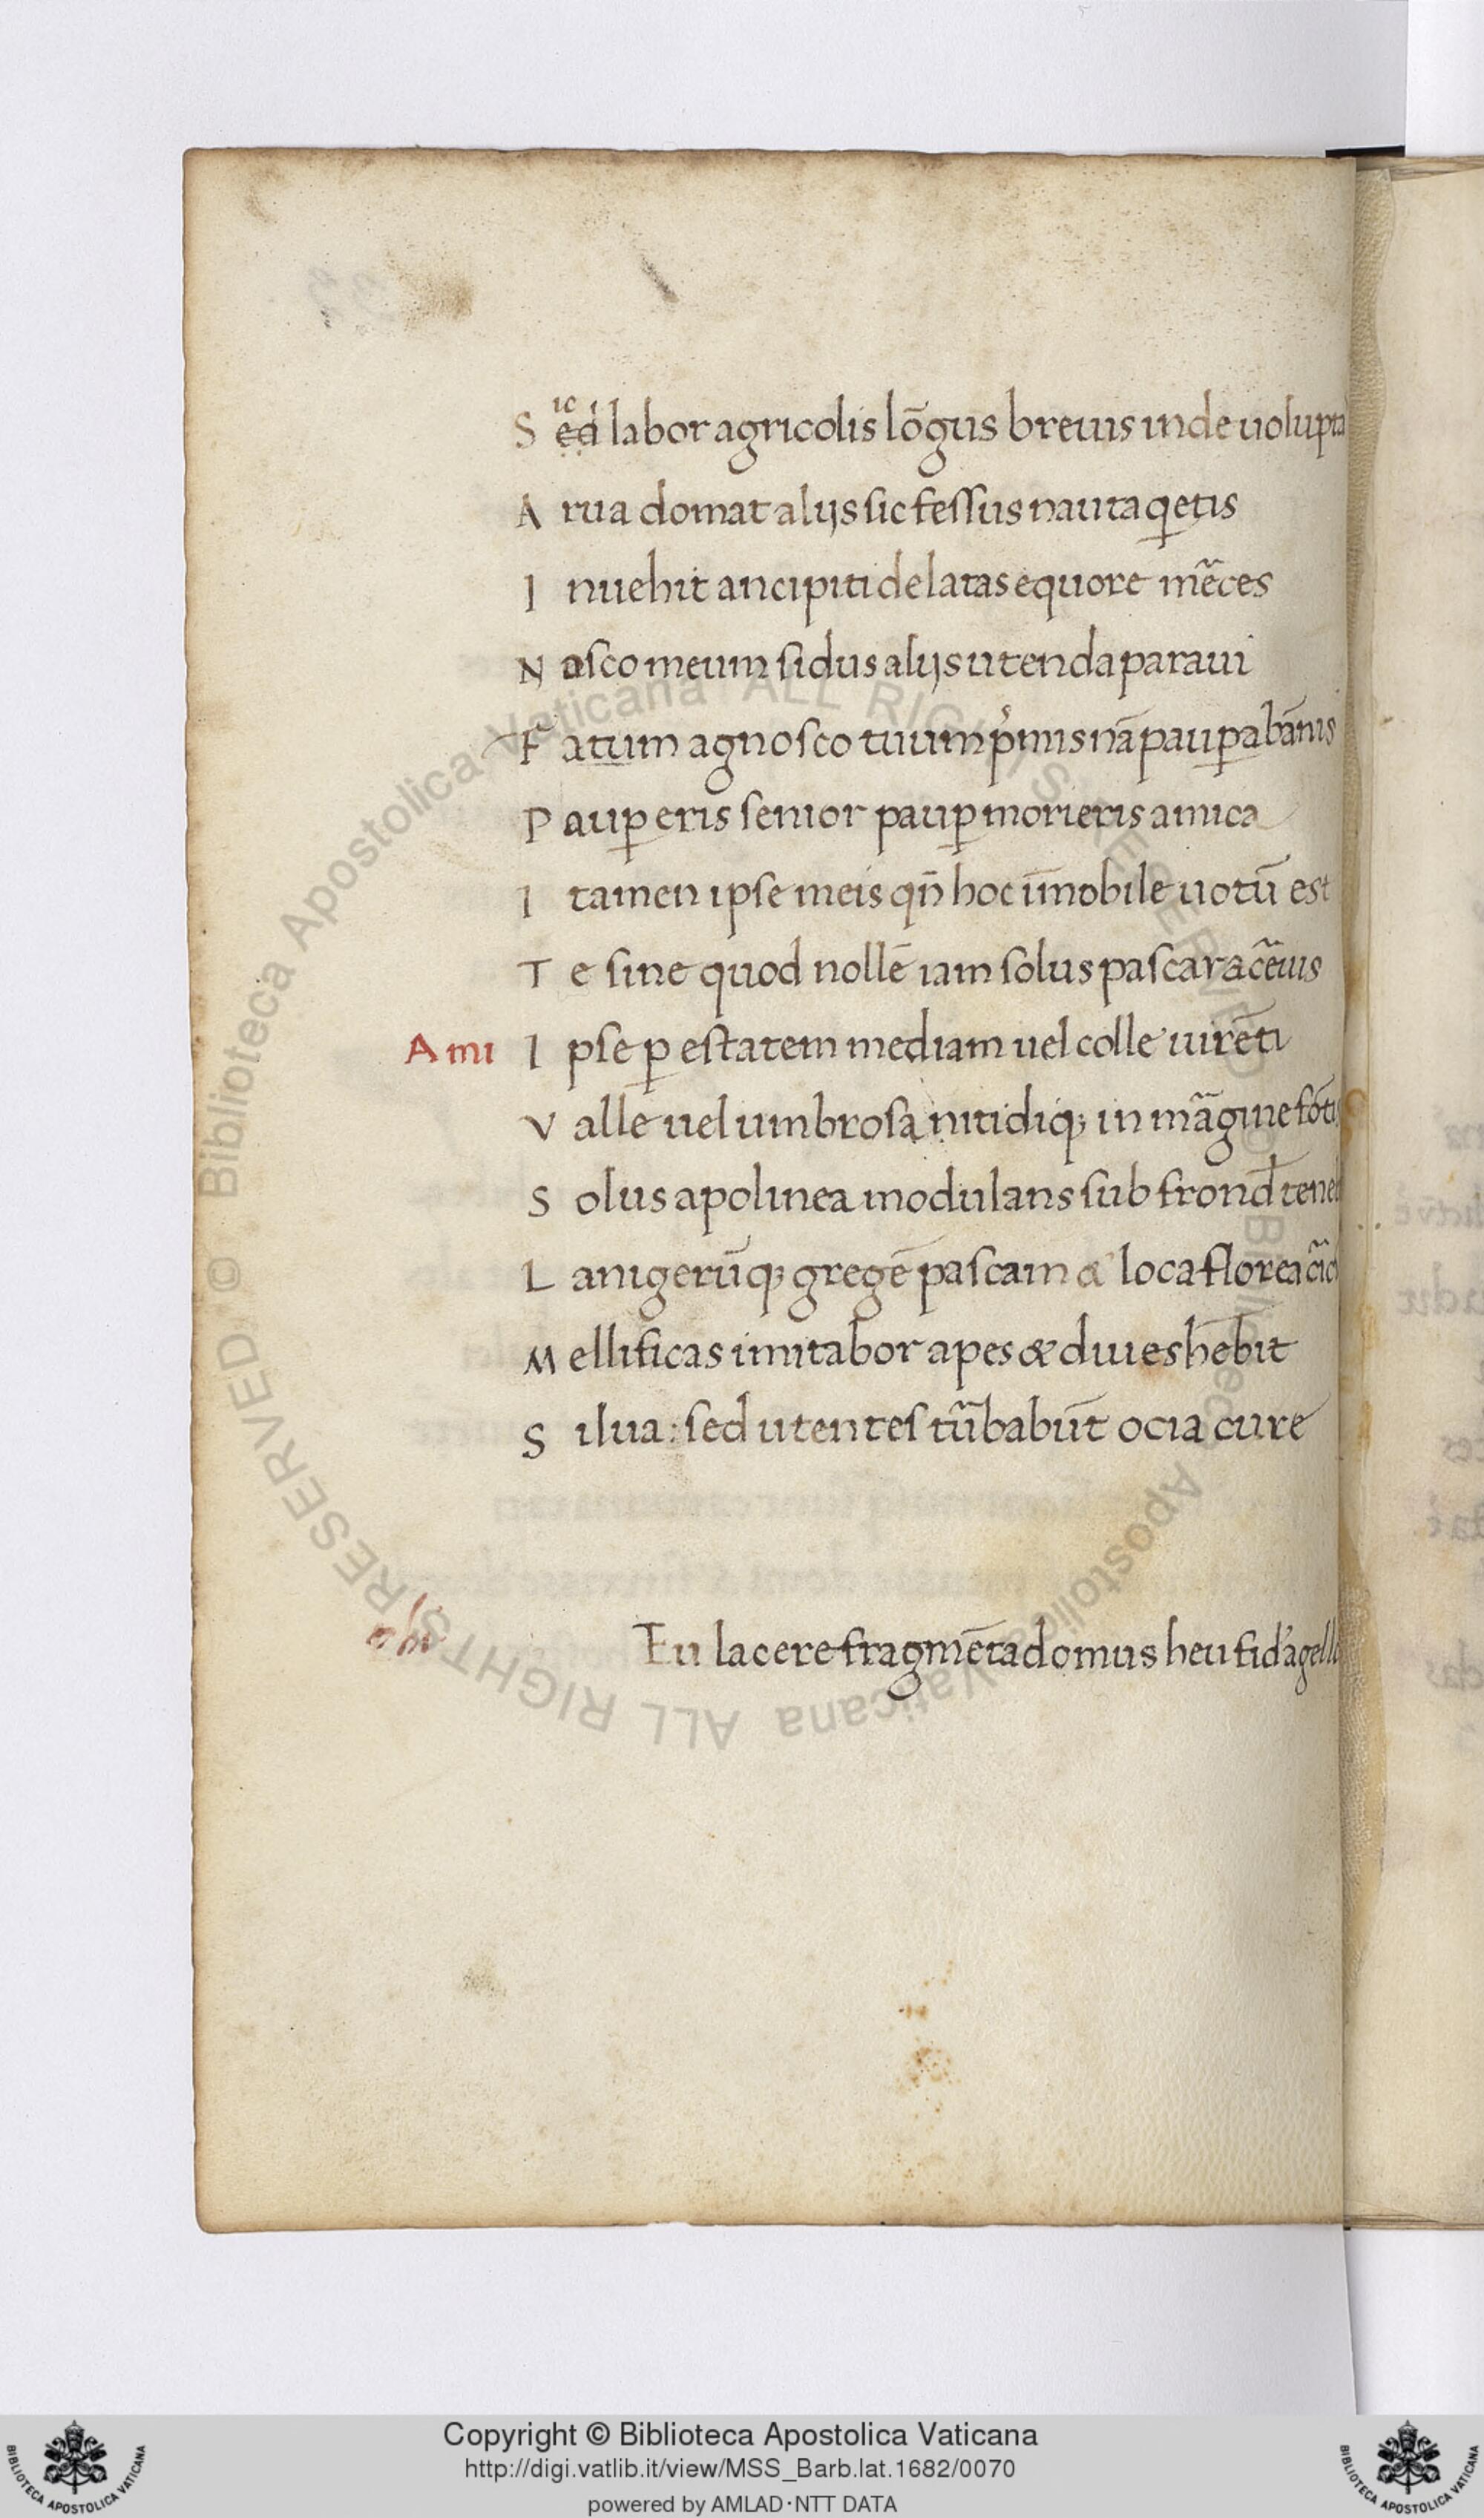 S ic ed labor agricolis lōgus breuis inde uolupta
A rua domat alijs sic fessus nauta qetis
I nuehit ancipiti delatas equore mẽces
N osco meum sidus alijs utenda paraui
F atum agnosco tuum pͥmis nã paup ab ãnis
P aup eris senior paup morieris amica
I tamen ipse meis qñ hoc īmobile uotū est
T e sine quod nollē iam solus pascar acẽuis
Ami I pse p estatem mediam uel colle uirēti
V alle uel umbrosa nitidiq; in mãgine fōti
S olus apolinea modulans sub frond̄ tene
L anigerūq; gregē pascam & loca florea
M ellificas imitabor apes & diuies hēbit
S ilua: sed utentes tũbabūt ocia cure
En lacere fragmēta domus heu fid' agell
Copyright © Biblioteca Apostolica Vaticana
http://digi.vatlib.it/view/MSS_Barb.lat.1682/0070
powered by AMLAD·NTT DATA
Biblioteca Apostolica Vaticana ALL RIGHTS RESERVED ©
BIBLIOTECA APOSTOLICA VATICANA
BIBLIOTECA APOSTOLICA VATICANA